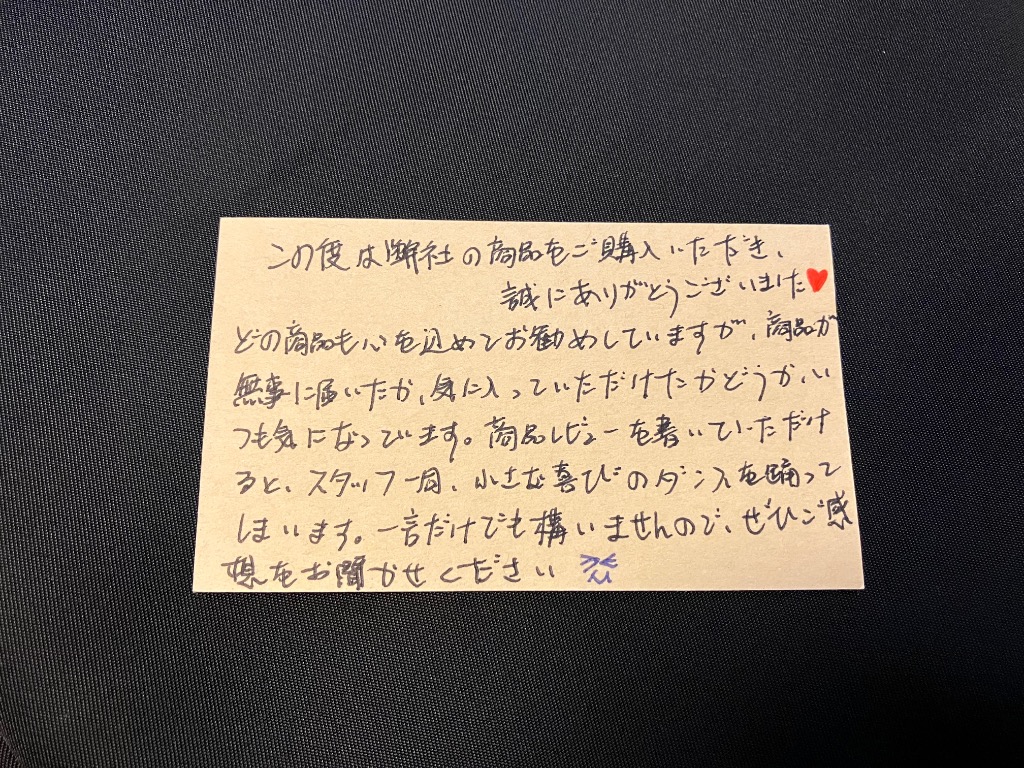 この度は弊社の商品をご購入いただき、
誠にありがとうございました♥
どの商品も心を込めてお勧めしていますが、商品が
無事に届いたか、気に入っていただけたかどうか、い
つも気になっています。商品レビューを書いていただけ
ると、スタッフ一同、小さな喜びのダンスを踊って
しまいます。一言だけでも構いませんので、ぜひご感
想をお聞かせください